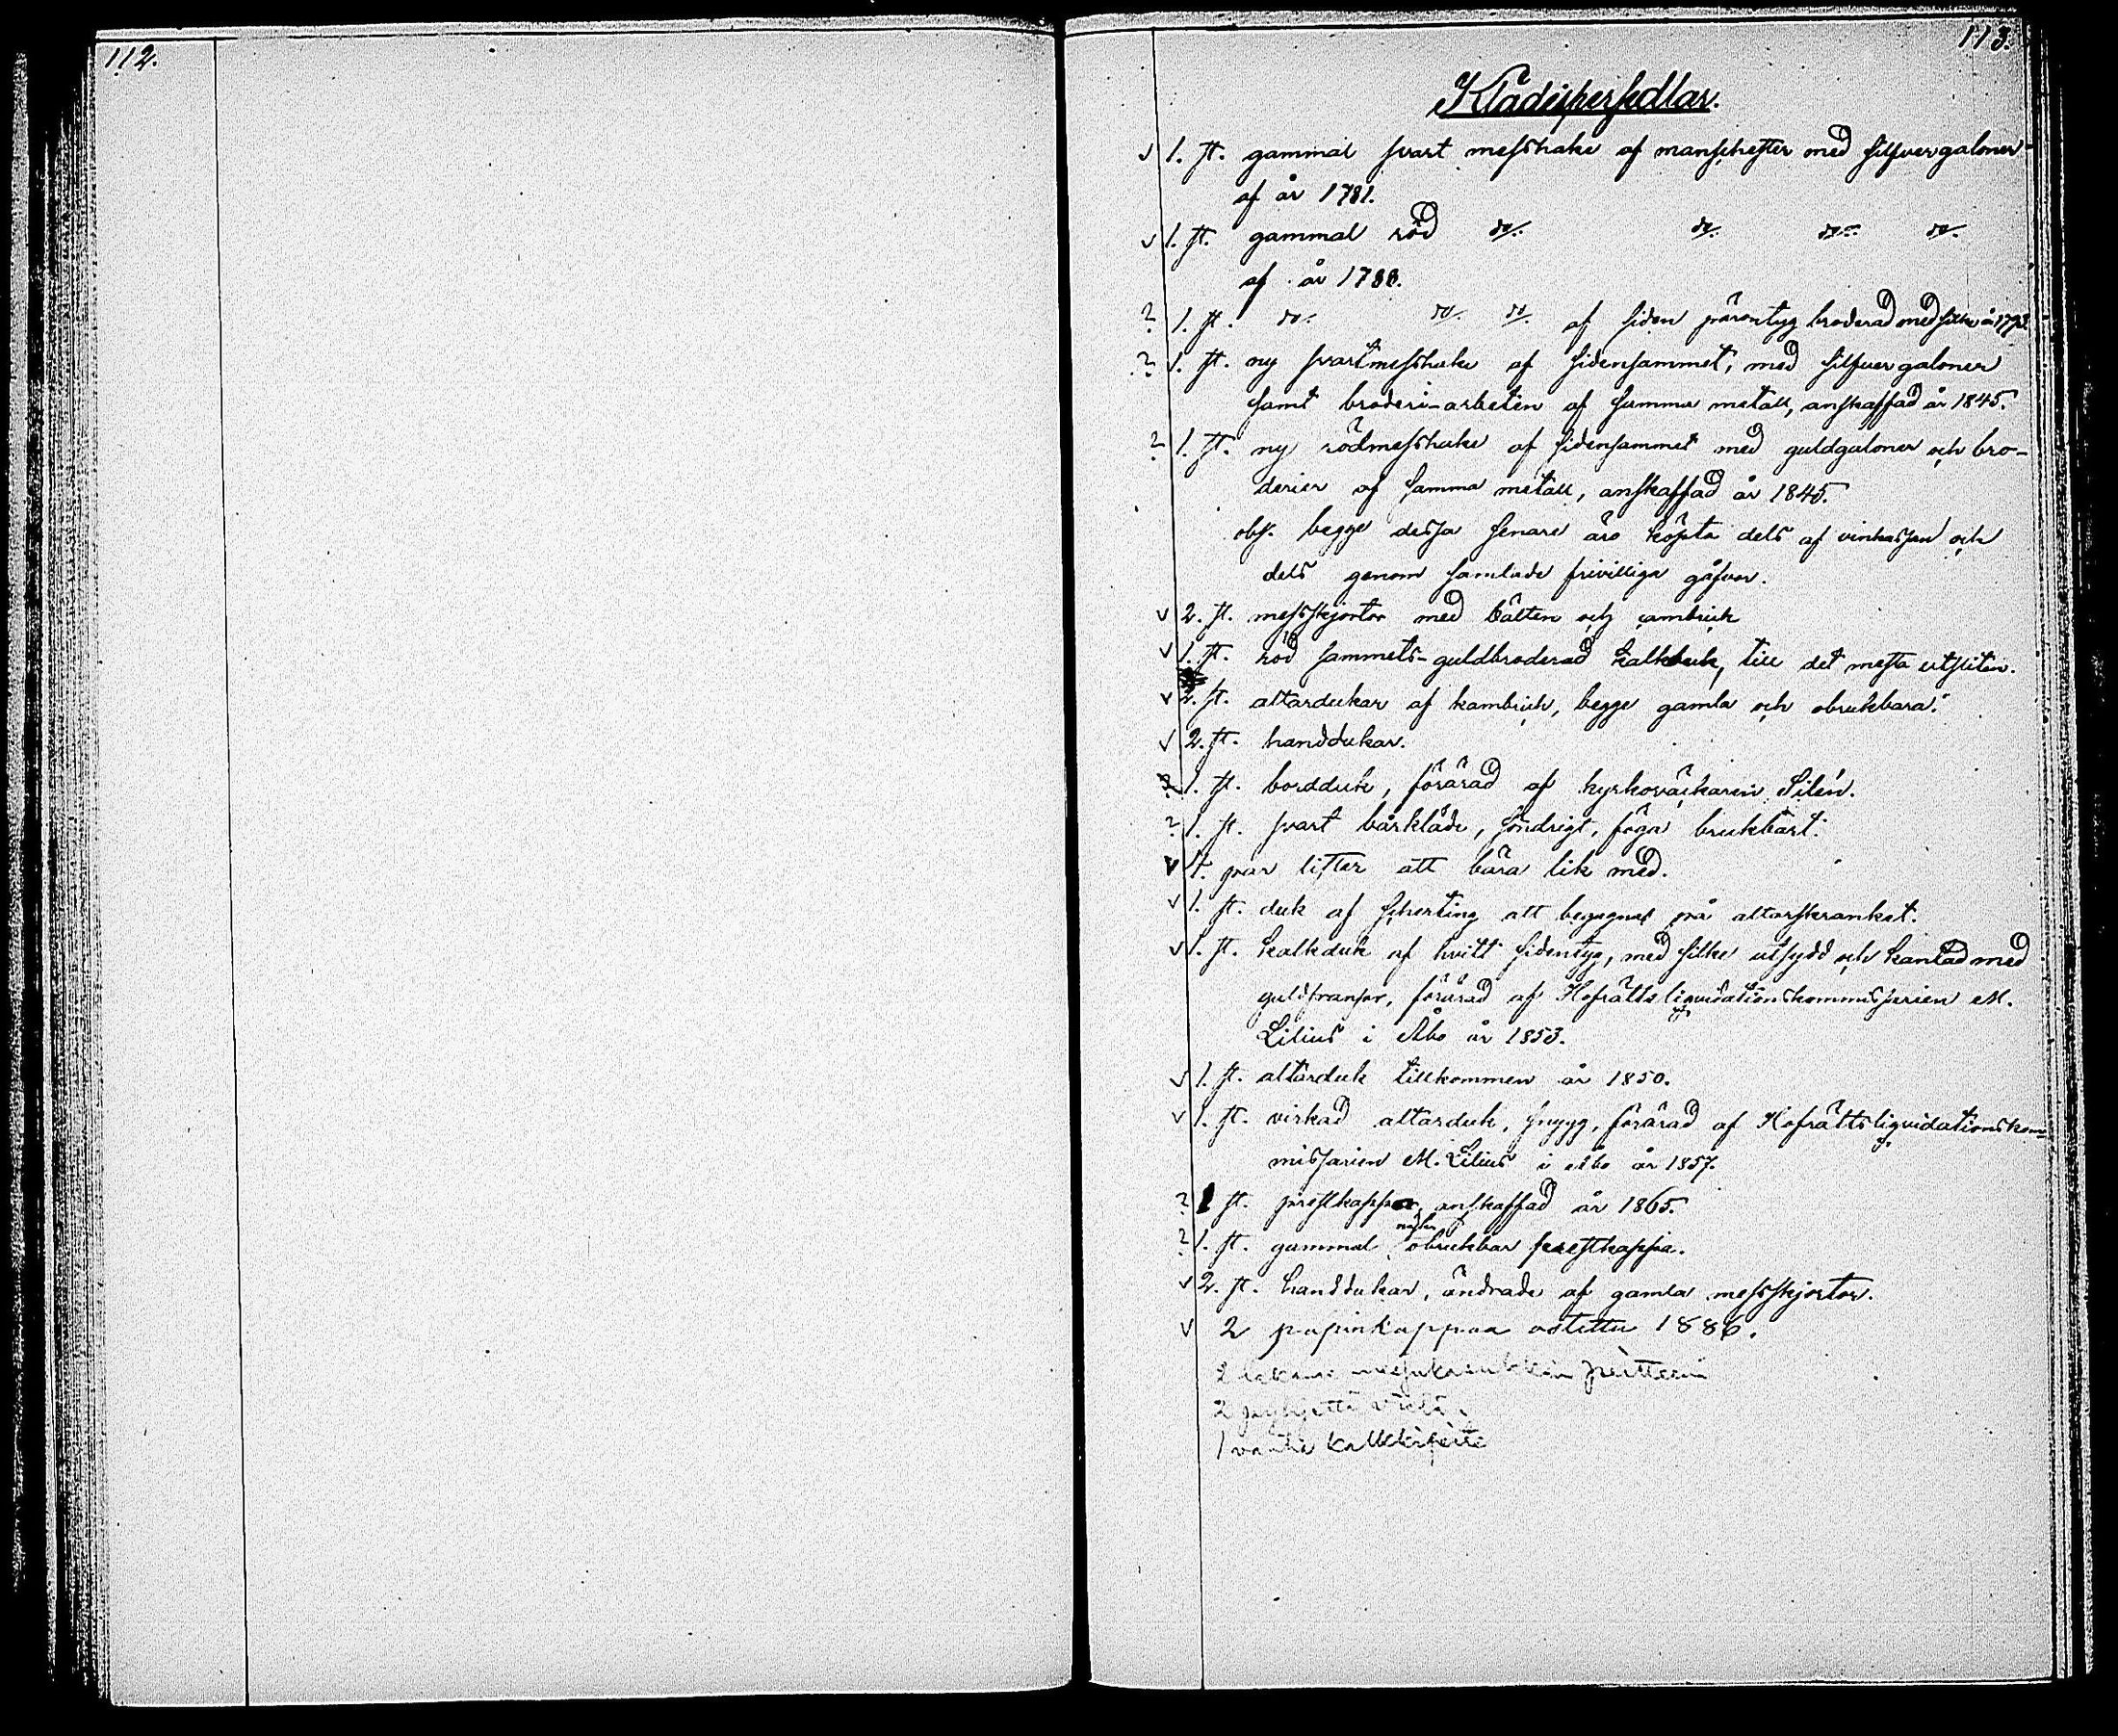 112.
113.
Klädespersedlar.
v 1. st. gammal svart messhake af manschester med silfvergaloner
af år 1781.
v 1. st. gammal röd do. do. do. do.
af år 1788.
? 1. st. do. do. do. af siden broderad med silke år 1793.
? 1. st. ny svart messhake af sidensammet, med silfvergaloner
samt broderi-arbeten af samma metall, anskaffad år 1845.
? 1. st. ny röd messhake af sidensammet med guldgaloner och bro-
derier af samma metall, anskaffad år 1845.
obs. begge dessa senare äro köpta dels af vinkassan och
dels genom samlade frivilliga gåfvor.
v 2. st. messskjortor med bälten och cambrick
v 1. st. röd sammets-guldbroderad kalkduk, till det mesta utsliten.
v 2. st. altardukar af kambrick, begge gamla och obrukbara.
v 2. st. handdukar.
? 1. st. bordduk, förärad af kyrkoväckaren Silén.
? 1. st. svart bårkläde, söndrigt, föga brukbart.
v 4. par lifter att bära lik med.
v 1. st. duk af scherting att begagnas på altarskranket.
v 1. st. kalkduk af hvitt sidentyg, med silke utsydd och kantad med
guldfransar, förärad af Hofrättsliqvidationskommissarien M.
Lilius i Åbo år 1853.
v 1. st. altarduk tillkommen år 1850.
v 1. st. virkad altarduk, snygg, förärad af Hofrättsliqvidationskom-
missarien M. Lilius i Åbo år 1857.
? 1 st. prestkappa, anskaffad år 1865.
? 1. st. gammal nästan obrukbar prestkappa.
v 2. st. handdukar, ändrade af gamla messskjortor.
v 2 papinkappaa ostettu 1886.
2
2 pyhjettä
1 vanha kalkkipeite